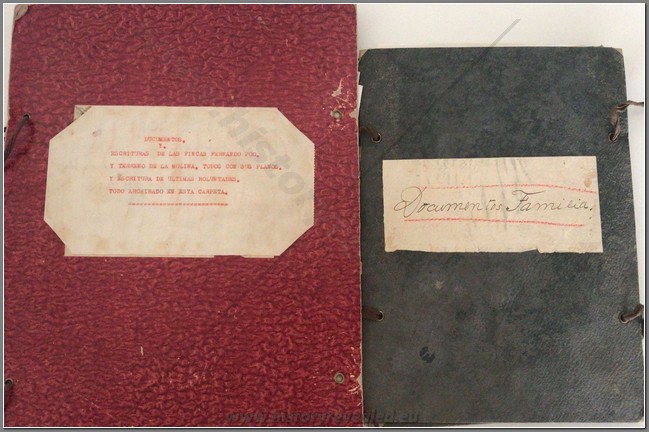 DOCUMENTOS.
Y.
ESCRITURAS DE LAS FINCAS FERNANDO POO,
Y TERRENO DE LA MOLINA, TODOS CON SUS PLANOS,
Y ESCRITURA DE ULTIMAS VOLUNTADES,
TODO ARCHIVADO EN ESTA CARPETA.
Documentos Familia.